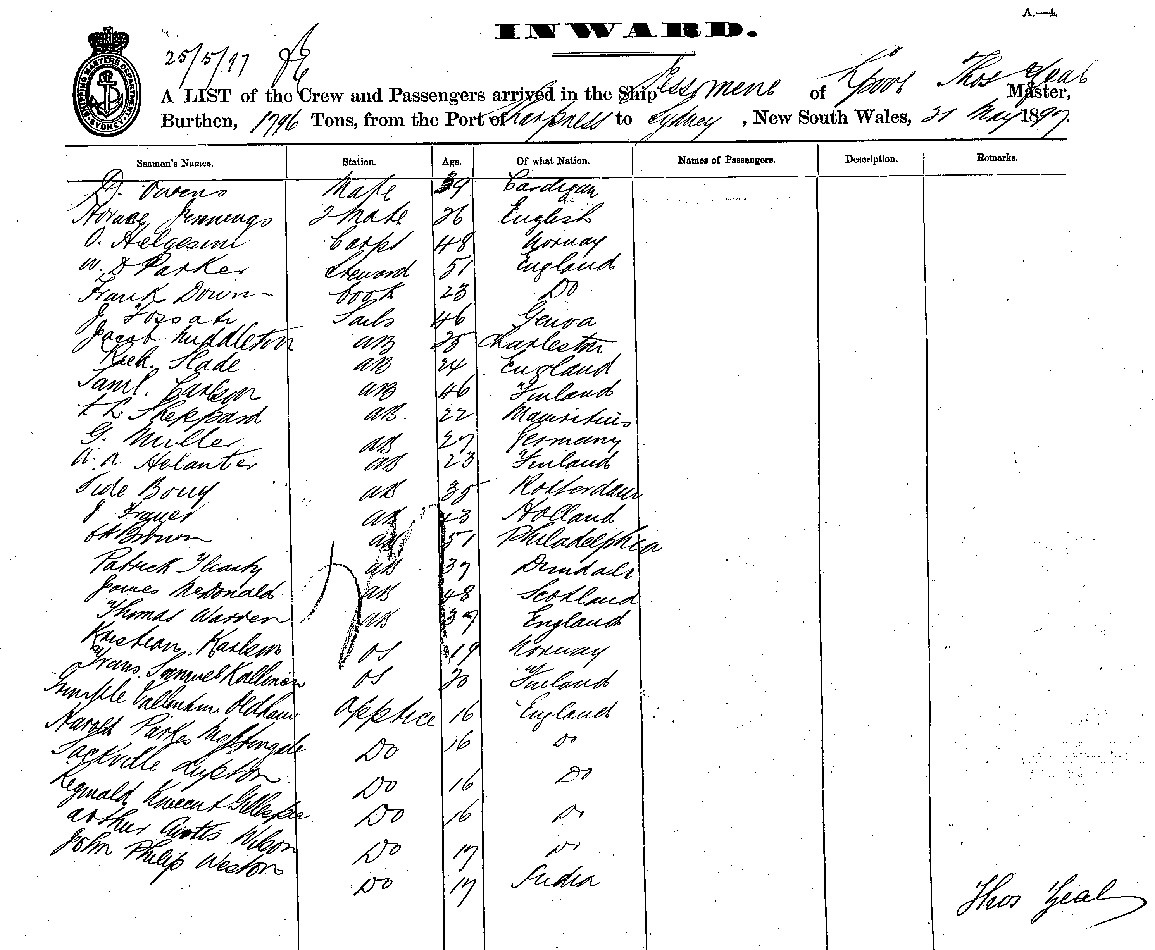 A.—4.
INWARD.
25/5/97
A LIST of the Crew and Passengers arrived in the Ship Ismene of L'pool Thos Yeal Master,
Burthen, 1796 Tons, from the Port of Sharpness to Sydney, New South Wales, 31 May 1897
Seamen's Names. Station. Age. Of what Nation. Names of Passengers. Description. Remarks.
D. Owens Mate 39 Cardigan
Horace Jennings 2 Mate 26 English
O. Helgeseni Carpt 48 Norway
W. D Parker Steward 51 England
Frank Down Cook 23 Do
J Fossati Sails 46 Genoa
Jacob Middleton AB 25 Charleston
Rich. Slade AB 24 England
Saml. Carlson AB 46 Finland
Sheppard AB 22 Mauritius
G. Muller AB 27 Germany
AB 23 Finland
AB 35 Rotterdam
J AB 43 Holland
Brown AB 51 Philadelphia
Patrick AB 37 Dundalk
James McDonald AB 48 Scotland
Thomas Warren AB 37 England
Kristian Karlson OS 19 Norway
Frans Samuel OS 20 Finland
Oldham Apptice 16 England
Harold Parkes Nightingale Do 16 Do
Sackville Do 16 Do
Reginald Vincent Gillespie Do 16 Do
Arthur Curtis Wilson Do 17 Do
John Philip Weston Do 17 India
Thos Yeal